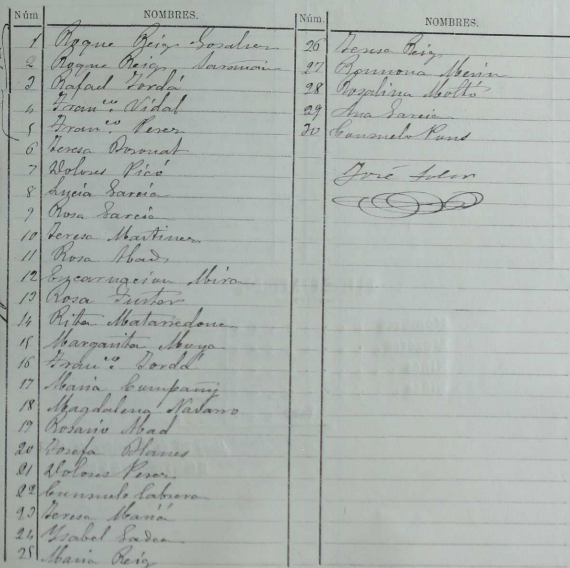 Núm NOMBRES.
1 Roque Reig Gosalvez
2 Roque Reig
3 Rafael Jordá
4 Fran.co Vidal
5 Fran.co Perez
6 Teresa Boronat
7 Dolores Picó
8 Lucia Garcia
9 Rosa Garcia
10 Teresa Martinez
11 Rosa Abad
12 Encarnacion Mira
13 Rosa Fuster
14 Rita Matarredona
15 Margarita Moya
16 Fran.co Jordá
17 Maria Company
18 Magdalena Navarro
19 Rosario Abad
20 Josefa Blanes
21 Dolores Perez
22 Consuelo Cabrera
23 Teresa
24 Ysabel Gadea
25 Maria Reig
Núm. NOMBRES.
26 Teresa Reig
27
28 Rosalina Moltó
29 Ana Garcia
30 Consuelo Pons
José